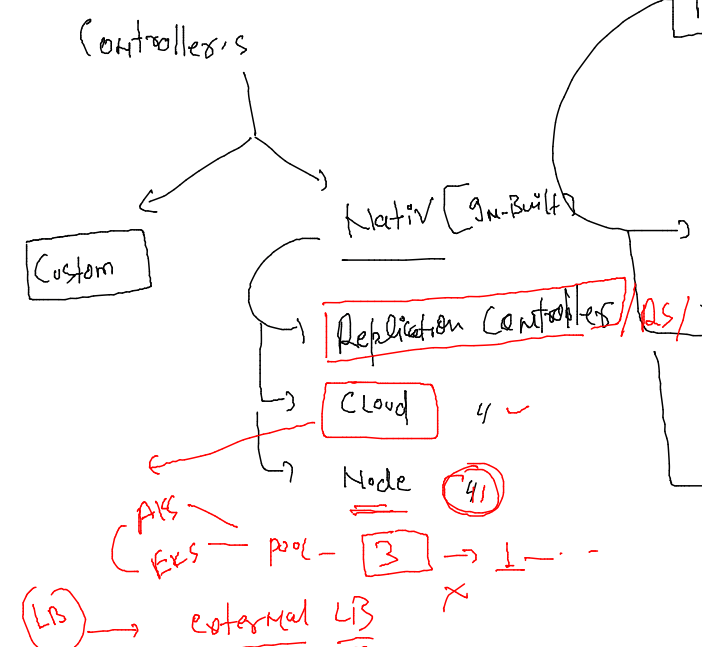 Controller's
Nativ [In-Built)
Custom
Replication Controllers / RS /
Cloud 4
Node 41
AKS
EKS pool - 3 → 1
x
LB → external LB